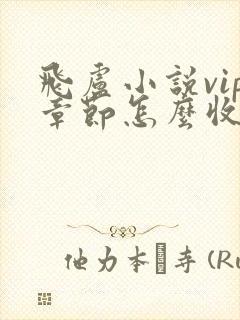 飛盧小說vip
章節怎麼收
他力本 寺 (Ru